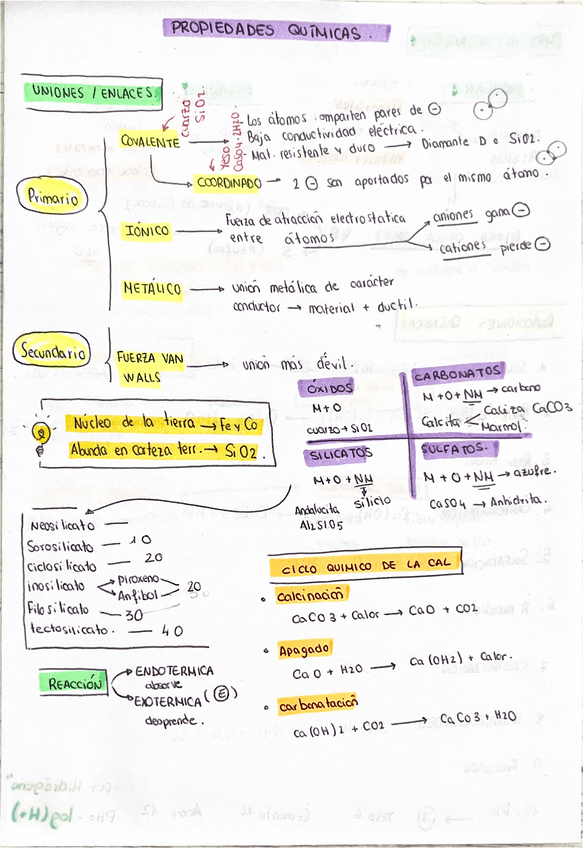 PROPIEDADES QUÍMICAS.
UNIONES / ENLACES.
cuarzo SiO2
Yeso CaSO4·2H2O
COVALENTE → Los átomos comparten pares de ⊖
Baja conductividad eléctrica.
Mat. resistente y duro → Diamante D o SiO2.
COORDINADO → 2 ⊖ son aportados por el mismo átomo.
Primario
IÓNICO → Fuerza de atracción electrostatica
entre átomos
aniones gana ⊖
cationes pierde ⊖
METÁLICO → unión metálica de carácter
conductor → material + ductil.
Secundario
FUERZA VAN
WALLS → union más dévil.
Núcleo de la tierra → Fe y Co
Abunda en corteza terr. → SiO2.
ÓXIDOS
M + O
cuarzo → SiO2
CARBONATOS
M + O + NM → carbono
Calcita
Caliza CaCO3
Marmol.
SILICATOS
M + O + NM
silicio
Andalucita
Al2SiO5
SULFATOS.
M + O + NM → azufre.
CaSO4 → Anhidrita.
Neosilicato —
Sorosilicato — 10
ciclosilicato — 20
inosilicato
piroxeno
Anfibol
20
Filosilicato — 30
tectosilicato. — 40
CICLO QUIMICO DE LA CAL
• Calcinación
CaCO3 + Calor → CaO + CO2
• Apagado
CaO + H2O → Ca(OH2) + Calor.
• carbonatación
ca(OH)2 + CO2 → CaCo3 + H2O
REACCIÓN
ENDOTERMICA
absorve
EXOTERMICA (E)
desprende.